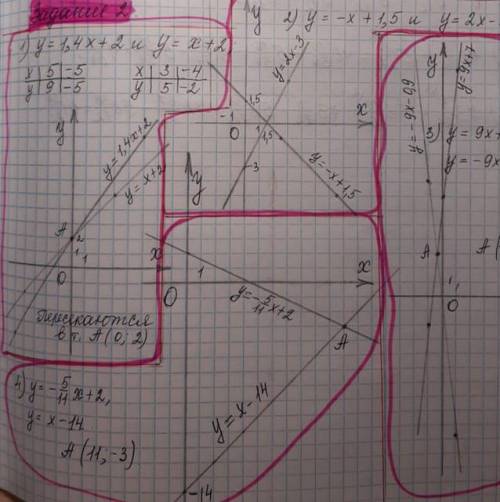 Задание 2
1) y=1,4x+2 и y=x+2
x 5 -5
y 9 -5
x 3 -4
y 5 -2
y
y=1,4x+2
y=x+2
A
2
1
1
0
x
пересекаются
в т. A(0; 2)
2) y=-x+1,5 и y=2x-
y
y=2x-3
1,5
-1
0
1
1,5
x
-3
y=-x+1,5
3) y=9x+
y=-9x-
y
y=-9x-0,9
y=9x+7
A
A(
1
0
4) y=-5/11x+2,
y=x-14
A(11;-3)
y
0
1
x
y=-5/11x+2
A
y=x-14
-14